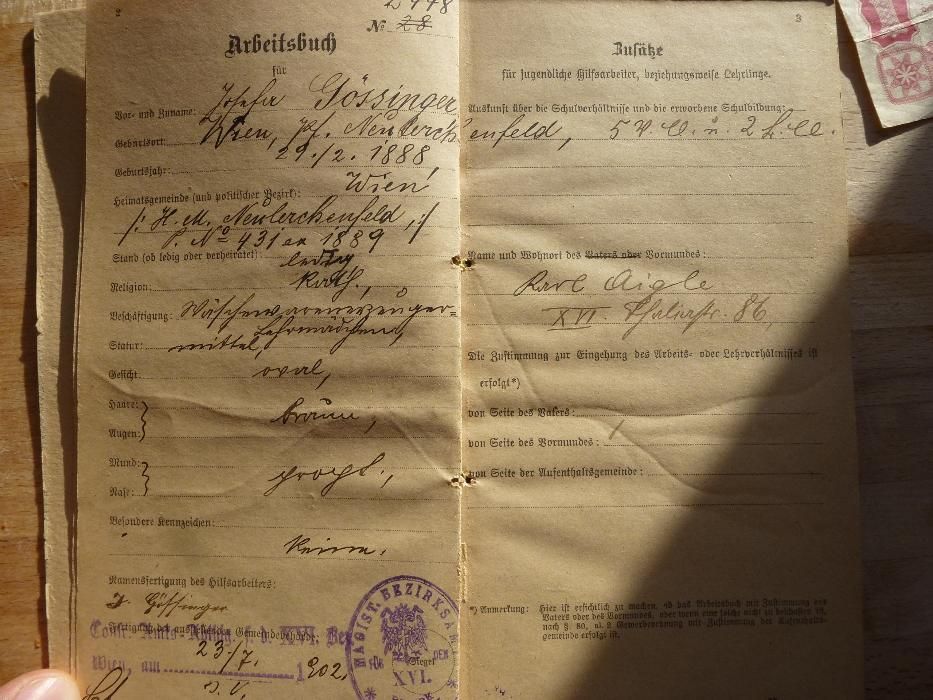 2
№ 28
Arbeitsbuch
für
Vor- und Zuname: Josefa Gössinger
Geburtsort: Wien, Neulerchenfeld,
Geburtsjahr: 29./2. 1888
Heimatsgemeinde (und politischer Bezirk): Wien
/: H. M. Neulerchenfeld, :/
P. № 431 ex 1889
Stand (ob ledig oder verheiratet): ledig
Religion: kath.,
Beschäftigung: Wäschewarenerzeuger=
Lehrmädchen,
Statur: mittel,
Gesicht: oval,
Haare:
Augen: braun,
Mund:
Nase: propt.,
Besondere Kennzeichen:
keine.
Namensfertigung des Hilfsarbeiters:
J. Gössinger
Fertigung der ausstellenden Gemeindebehörde:
XVI. Bez
23./7.
Wien, am 1902.
MAGIST. BEZIRKSA
FÜR DEN
Siegel
XVI.
3
Zusätze
für jugendliche Hilfsarbeiter, beziehungsweise Lehrlinge.
Auskunft über die Schulverhältnisse und die erworbene Schulbildung:
5 V. C. u. 2 b. C.
Name und Wohnort des Vaters oder Vormundes:
Karl Aigle
XVI. Thaliastr. 86,
Die Zustimmung zur Eingehung des Arbeits- oder Lehrverhältnisses ist
erfolgt*)
von Seite des Vaters:
von Seite des Vormundes: /
von Seite der Aufenthaltsgemeinde:
*) Anmerkung: Hier ist ersichtlich zu machen, ob das Arbeitsbuch mit Zustimmung des
Vaters oder des Vormundes, oder wenn eine solche nicht zu beschaffen ist,
nach § 80, al. 2 Gewerbeordnung mit Zustimmung der Aufenthalts-
gemeinde erfolgt ist.